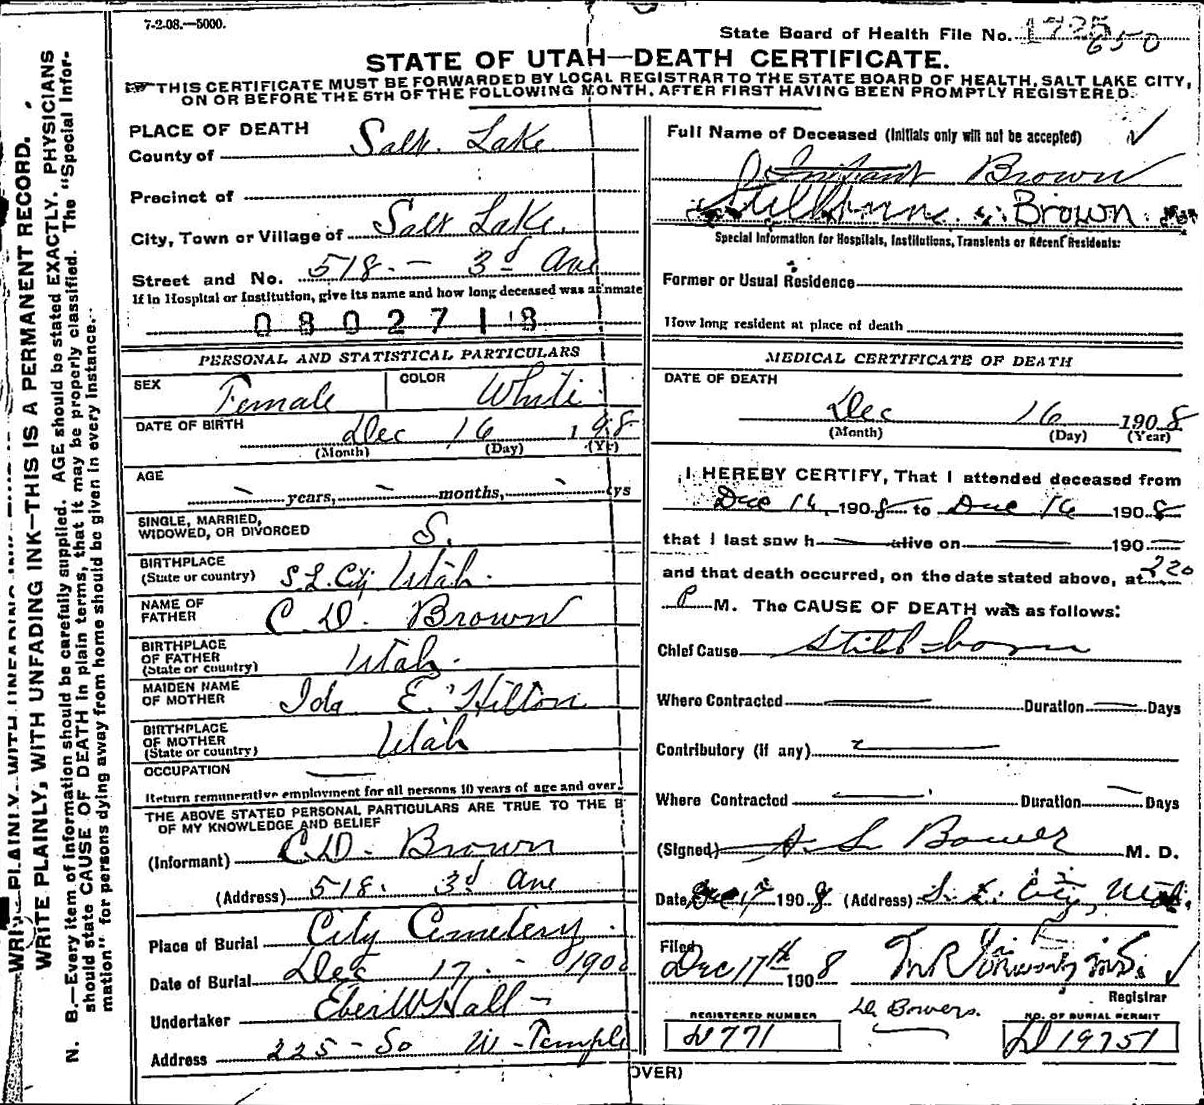 7-2-08.—5000.
State Board of Health File No. 1725
650
STATE OF UTAH—DEATH CERTIFICATE.
THIS CERTIFICATE MUST BE FORWARDED BY LOCAL REGISTRAR TO THE STATE BOARD OF HEALTH, SALT LAKE CITY,
ON OR BEFORE THE 5TH OF THE FOLLOWING MONTH, AFTER FIRST HAVING BEEN PROMPTLY REGISTERED.
WRITE PLAINLY, WITH UNFADING INK—THIS IS A PERMANENT RECORD.
N. B.—Every item of information should be carefully supplied. AGE should be stated EXACTLY. PHYSICIANS
should state CAUSE OF DEATH in plain terms, that it may be properly classified. The "Special Infor-
mation" for persons dying away from home should be given in every instance.
PLACE OF DEATH
County of Salt Lake
Precinct of
City, Town or Village of Salt Lake.
Street and No. 518. — 3d Ave
If in Hospital or Institution, give its name and how long deceased was an inmate
0802718
PERSONAL AND STATISTICAL PARTICULARS
SEX Female COLOR White
DATE OF BIRTH Dec 16 1908
(Month) (Day) (Yr)
AGE — years, — months, — ys
SINGLE, MARRIED,
WIDOWED, OR DIVORCED S.
BIRTHPLACE
(State or country) S L. City Utah.
NAME OF
FATHER C. D. Brown
BIRTHPLACE
OF FATHER
(State or country) Utah.
MAIDEN NAME
OF MOTHER Ida E. Hilton
BIRTHPLACE
OF MOTHER
(State or country) Utah
OCCUPATION —
Return remunerative employment for all persons 10 years of age and over.
THE ABOVE STATED PERSONAL PARTICULARS ARE TRUE TO THE B
OF MY KNOWLEDGE AND BELIEF
(Informant) C.D. Brown
(Address) 518. 3d Ave
Place of Burial City Cemetery.
Date of Burial Dec 17. 190
Undertaker Eber W Hall —
Address 225 - So W - Temple
Full Name of Deceased (Initials only will not be accepted) ✓
Infant Brown
Stillborn Brown
Special Information for Hospitals, Institutions, Transients or Recent Residents:
Former or Usual Residence
How long resident at place of death
MEDICAL CERTIFICATE OF DEATH
DATE OF DEATH
Dec 16 1908
(Month) (Day) (Year)
I HEREBY CERTIFY, That I attended deceased from
Dec 16, 1908 to Dec 16 1908
that I last saw h — alive on — 190 —
and that death occurred, on the date stated above, at 220
P M. The CAUSE OF DEATH was as follows:
Chief Cause Still-born
Where Contracted — Duration — Days
Contributory (if any) —
Where Contracted — Duration — Days
(Signed) A. S. Bower M. D.
Date Dec 17 1908 (Address) S. L. City, Utah.
Filed
Dec 17th 1908
Registrar
Dr. Bowers.
REGISTERED NUMBER
D771
NO. OF BURIAL PERMIT
D19751
OVER)